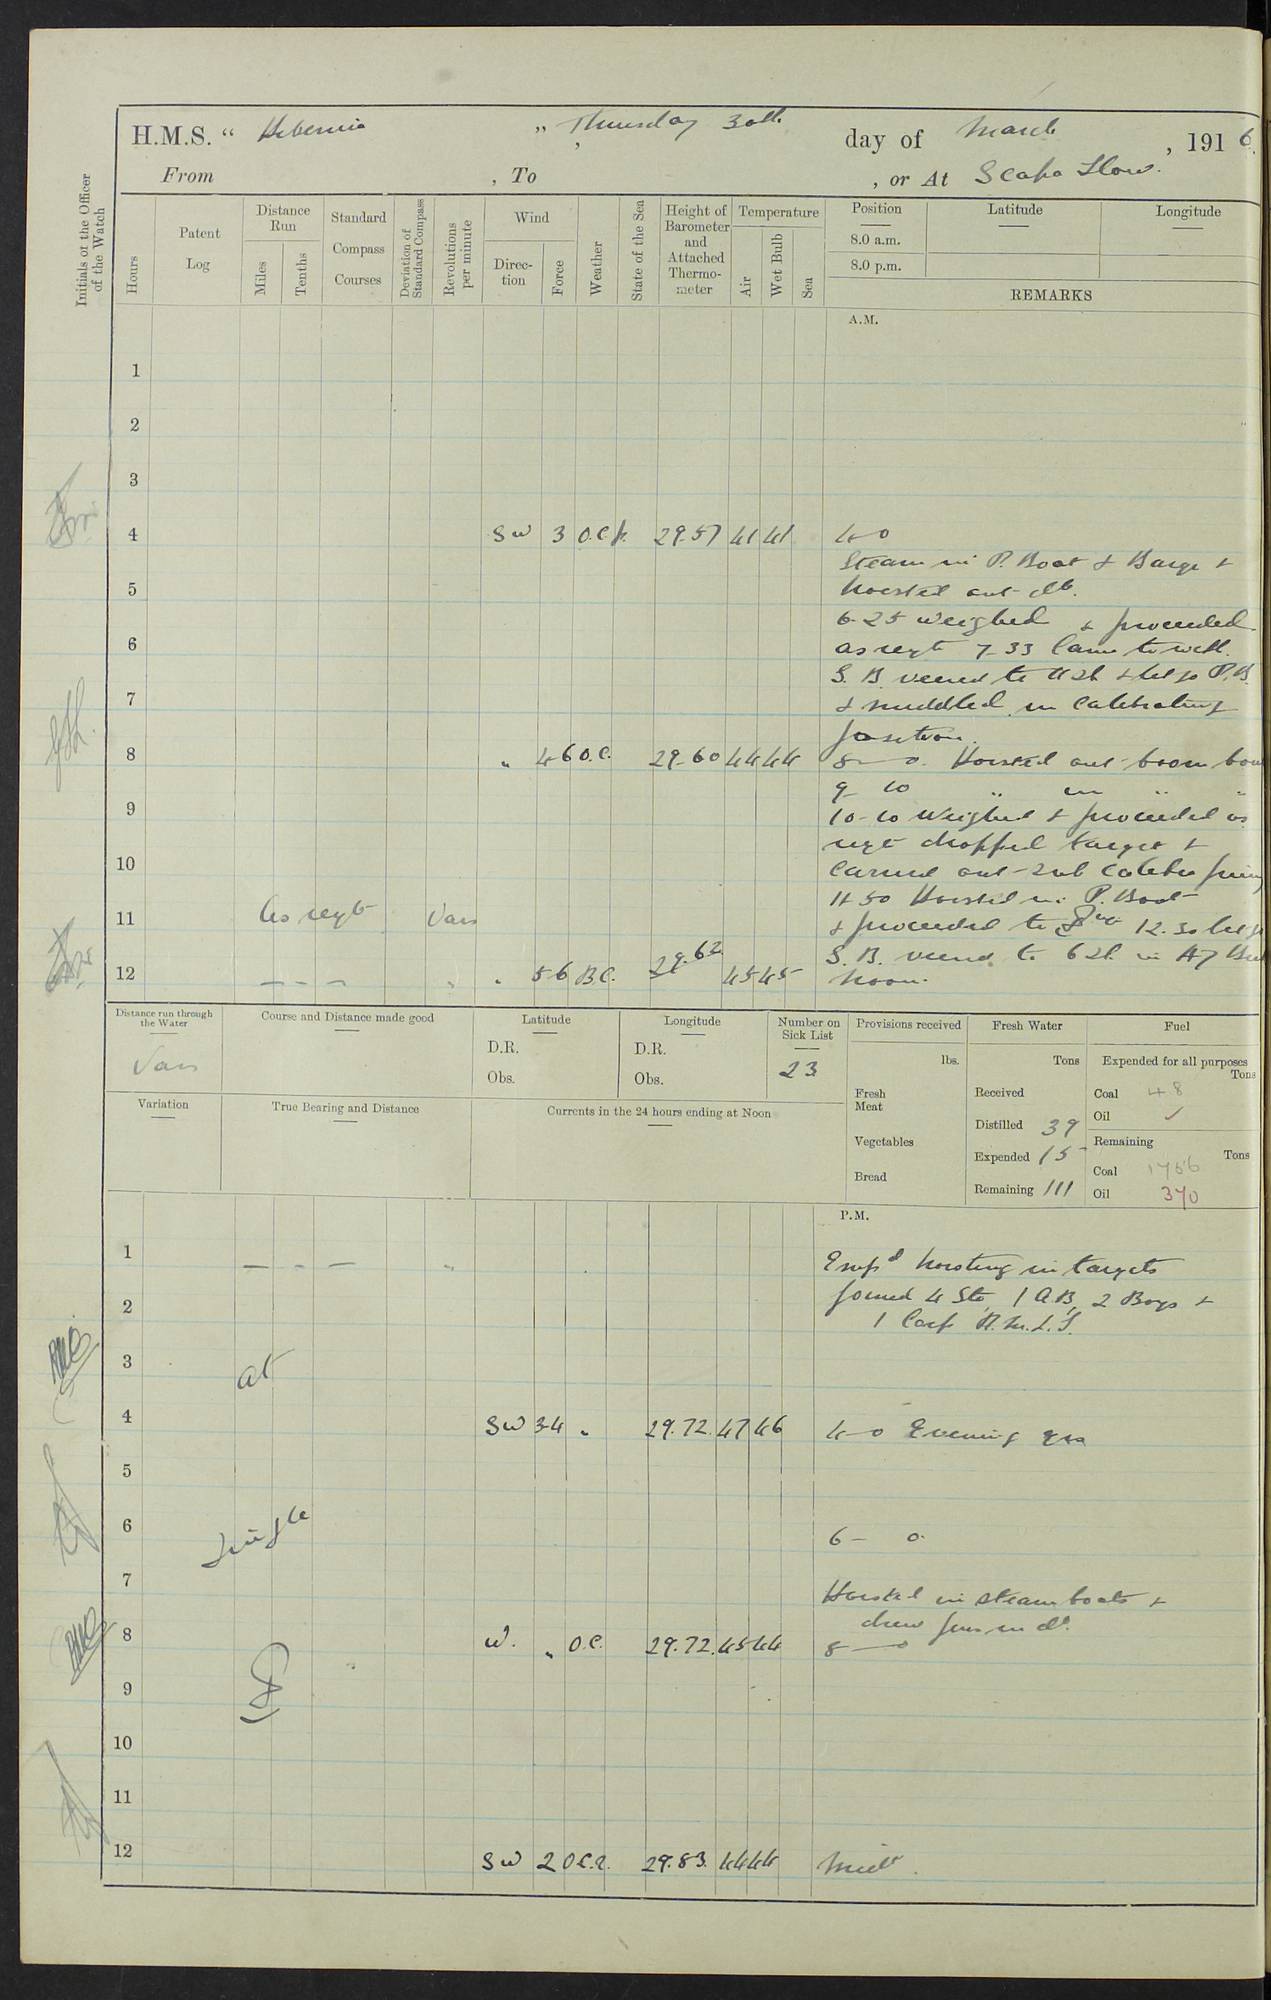 H.M.S. " Hibernia " Thursday 30th day of March, 1916.
From , To , or At Scapa Flow.
Initials of the Officer of the Watch
Hours
Patent Log
Distance Run
Miles
Tenths
Standard Compass Courses
Deviation of Standard Compass
Revolutions per minute
Wind
Direction
Force
Weather
State of the Sea
Height of Barometer and Attached Thermometer
Temperature
Air
Wet Bulb
Sea
Position Latitude Longitude
8.0 a.m.
8.0 p.m.
REMARKS
A.M.
1
2
3
4 SW 3 o.c.p. 29.57 41 41 4-0
Steam in P. Boat & Barge &
5 hoisted out do.
6-25 weighed & proceeded
6 as reqt 7-33 Came to with
S. B. veered to & let go P.B.
7 & middled in Calibrating
position.
8 " 4-6 o.c. 29.60 44 44 8-0. Hoisted out boom boat
9-10 " in " "
9
10-10 Weighed & proceeded as
reqt dropped target &
10 carried out sub calibre firing
11-50 Hoisted in P. Boat
11 As reqt Vars & proceeded to 12.30 let go
S. B. veered to 6 sh. in A7 Berth
12 — - — " " 5-6 B.C. 29.62 45 45 Noon.
Distance run through the Water
Vars
Course and Distance made good
Latitude
D.R.
Obs.
Longitude
D.R.
Obs.
Number on Sick List
23
Provisions received
lbs.
Fresh Meat
Vegetables
Bread
Fresh Water
Tons
Received
Distilled 39
Expended 15
Remaining 111
Fuel
Expended for all purposes
Tons
Coal 48
Oil ✓
Remaining
Tons
Coal 1756
Oil 370
Variation
True Bearing and Distance
Currents in the 24 hours ending at Noon
P.M.
1 — - — " Empd hoisting in targets
2 Joined 4 Sto, 1 A.B, 2 Boys &
1 Corp R.M.L.I.
3 at
4 SW 3-4 " 29.72 47 46 4-0 Evening qrs
5
6 Single 6-0.
7 Hoisted in steam boats &
drew fires in do.
8 W. " o.c. 29.72 45 44 8-0
9
10
11
12 SW 2 o.c.r. 29.83 44 44 Midt.